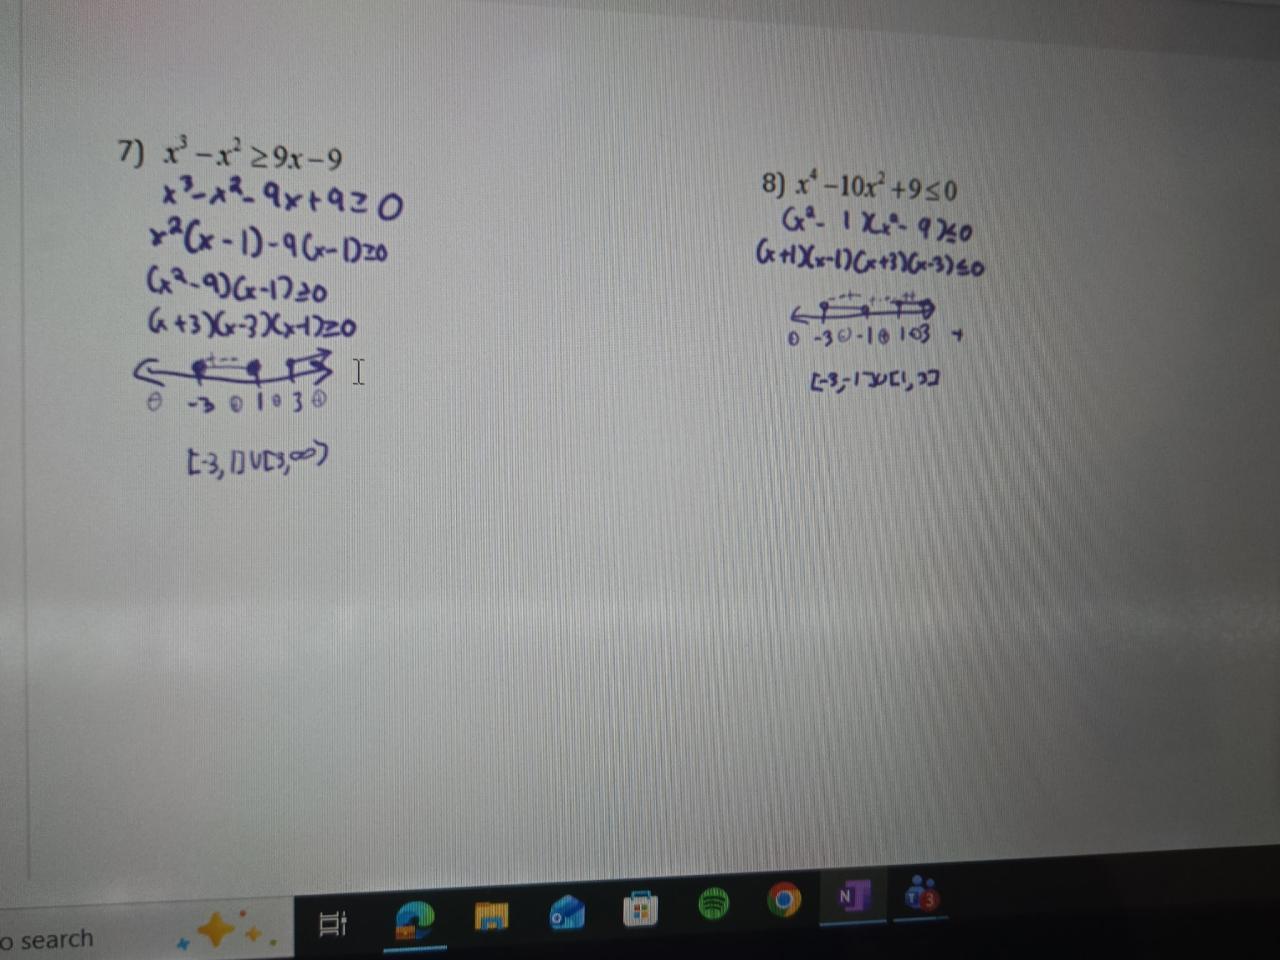 7) x³ − x² ≥ 9x − 9
x³ - x² - 9x + 9 ≥ 0
x²(x - 1) - 9(x - 1) ≥ 0
(x² - 9)(x - 1) ≥ 0
(x + 3)(x - 3)(x - 1) ≥ 0
-3 1 3
[-3, 1] ∪ [3, ∞)
8) x⁴ − 10x² + 9 ≤ 0
(x² - 1)(x² - 9) ≤ 0
(x + 1)(x - 1)(x + 3)(x - 3) ≤ 0
-3 -1 1 3 +
[-3, -1] ∪ [1, 3]
o search
N
T 3